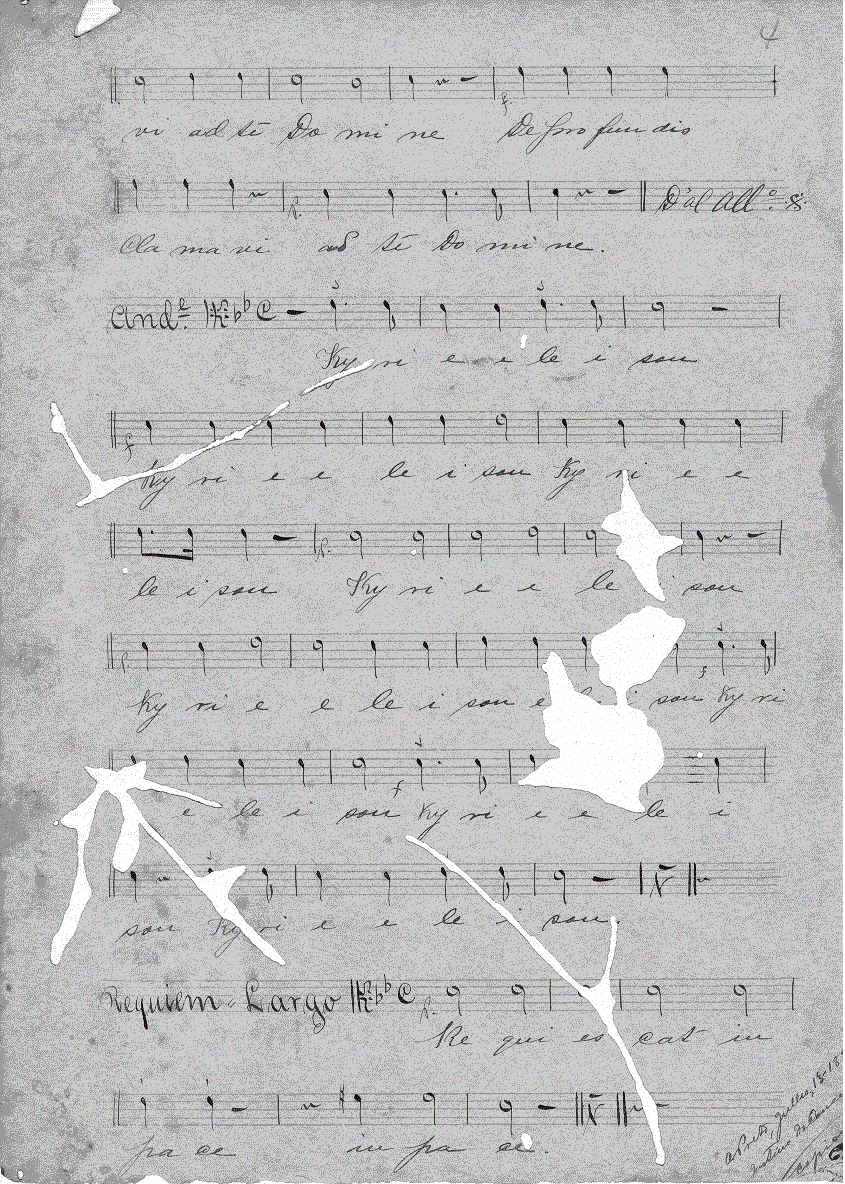 4
vi ad te Do mi ne De pro fun dis
Cla ma vi ad te Do mi ne. D'al All.º
And.e C Ky ri e e le i son
f Ky ri e e le i son Ky ri e e
le i son p. Ky ri e e le i son
p. Ky ri e e le i son e i son f Ky ri
e le i son f Ky ri e e le i
son Ky ri e e le i son.
Requiem - Largo C p. Re qui es cat in
pa ce in pa ce.